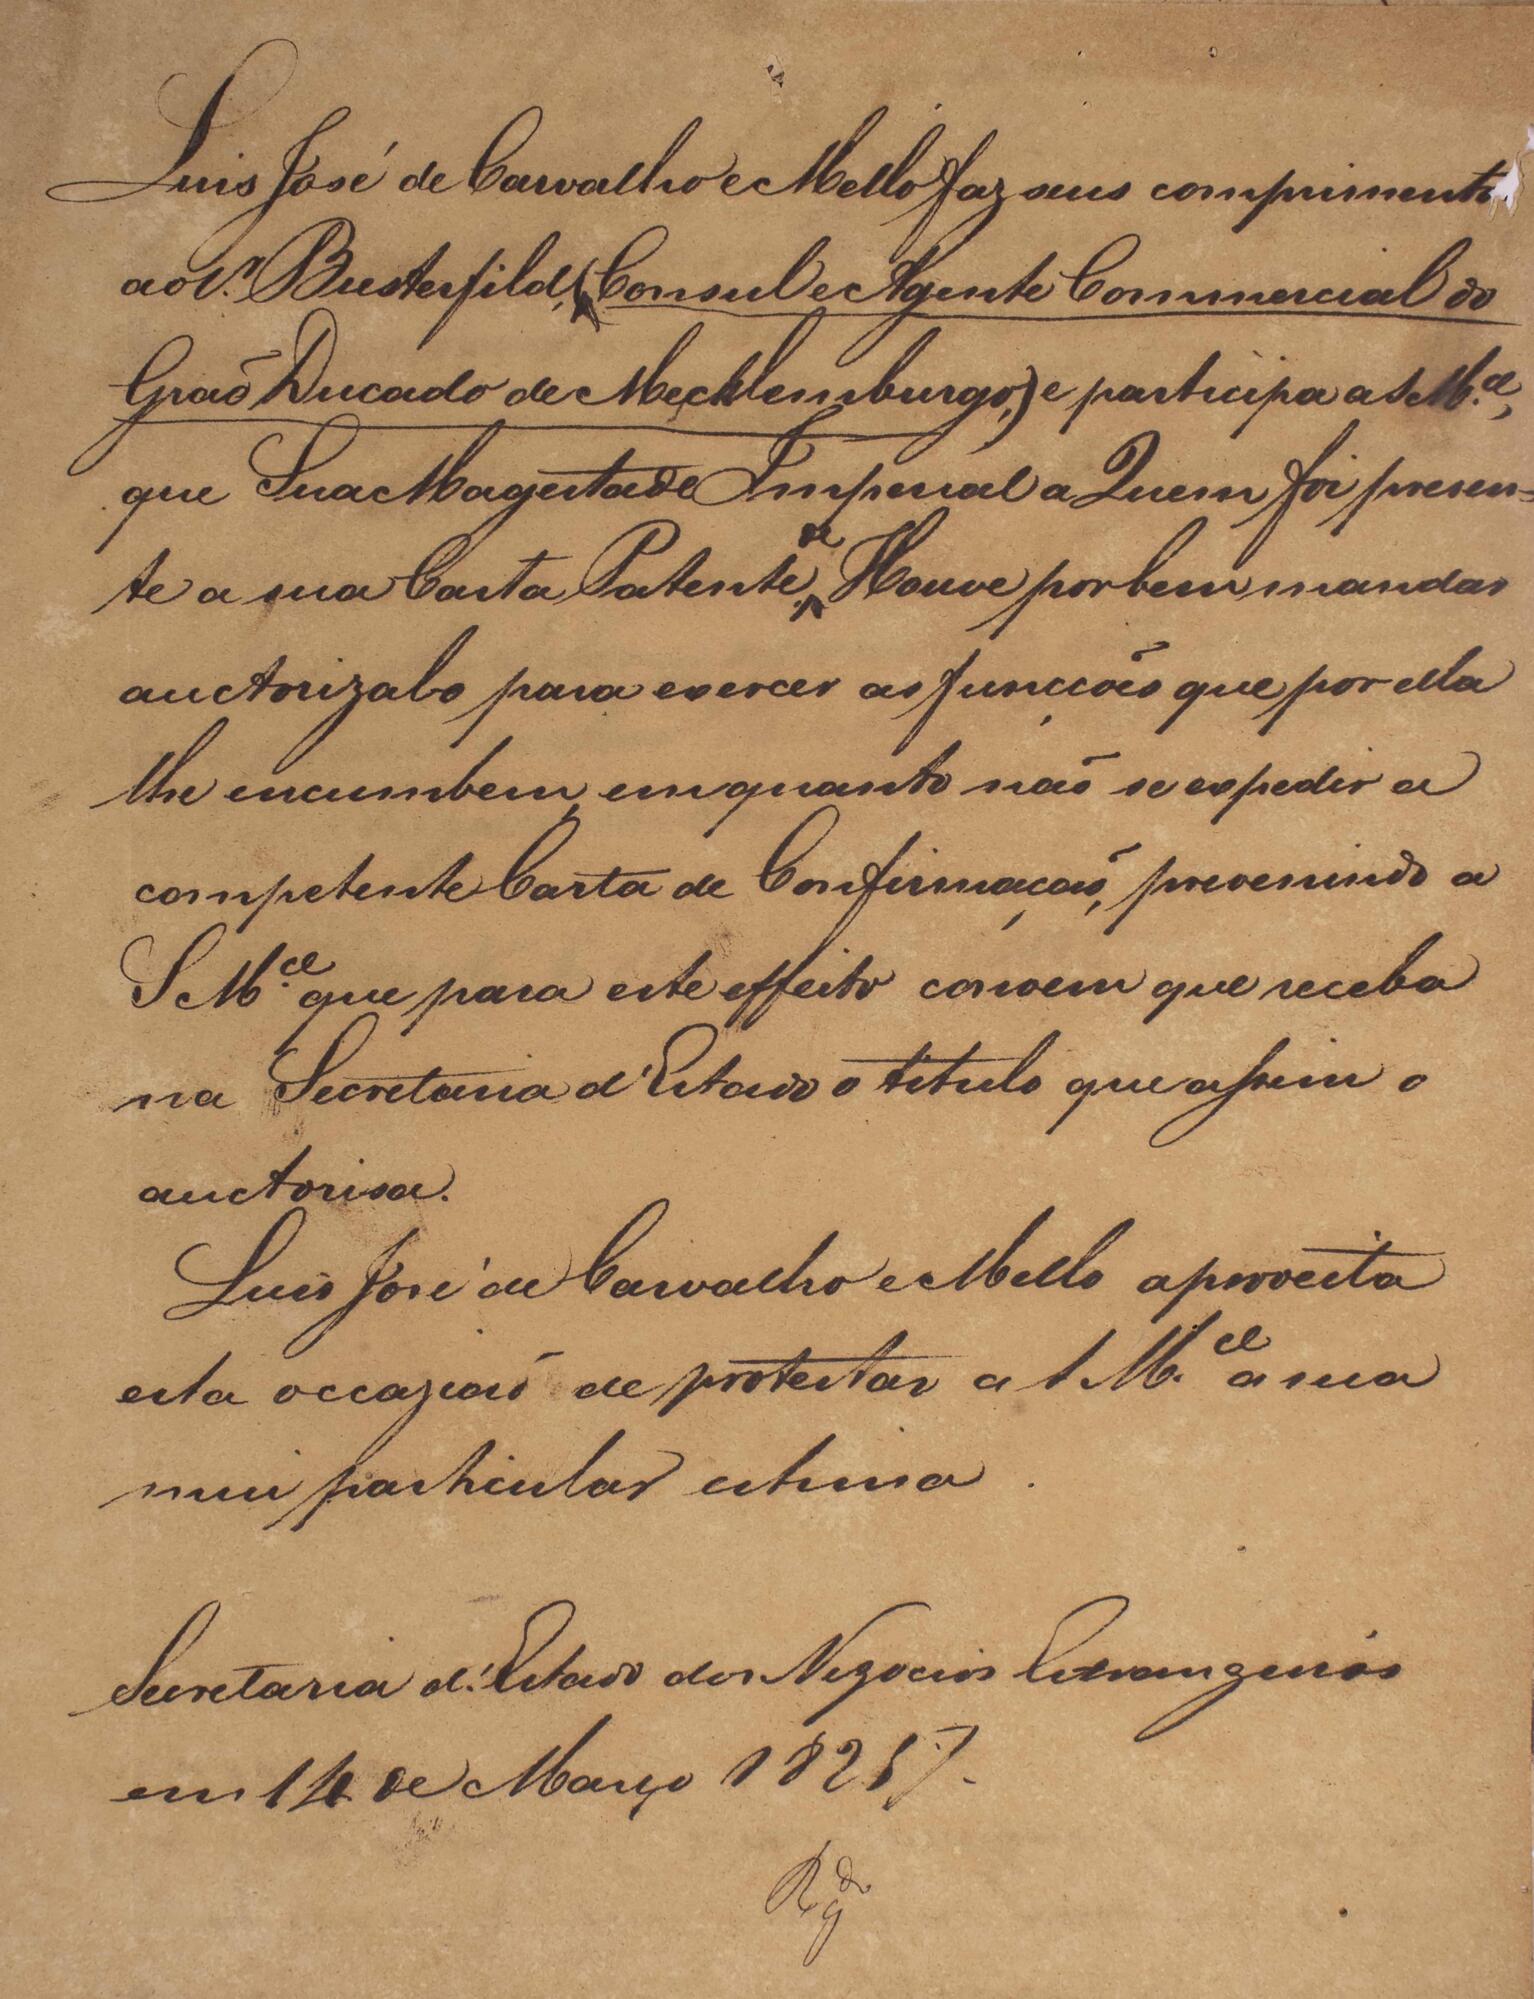 Luis José de Carvalho e Mello faz seus comprimento
ao Sr. Busterfild, (Consul e Agente Commercial do
Graõ Ducado de Mecklemburgo,) e participa a S M.ce,
que Sua Magestade Imperial a Quem foi presen=
te a sua Carta Patente de Houve por bem mandar
auctorizalo para exercer as funcções que por ella
lhe encumbem, emquanto não se expedir a
competente Carta de Confirmaçaõ, prevenindo a
S M.ce que para este effeito convem que receba
na Secretaria d'Estado o titulo que assim o
auctorisa.
Luis José de Carvalho e Mello aproveita
esta occaziaõ de protestar a S M.ce a sua
mui particular estima.
Secretaria d'Estado dos Negocios Estrangeiros
em 14 de Março 1825